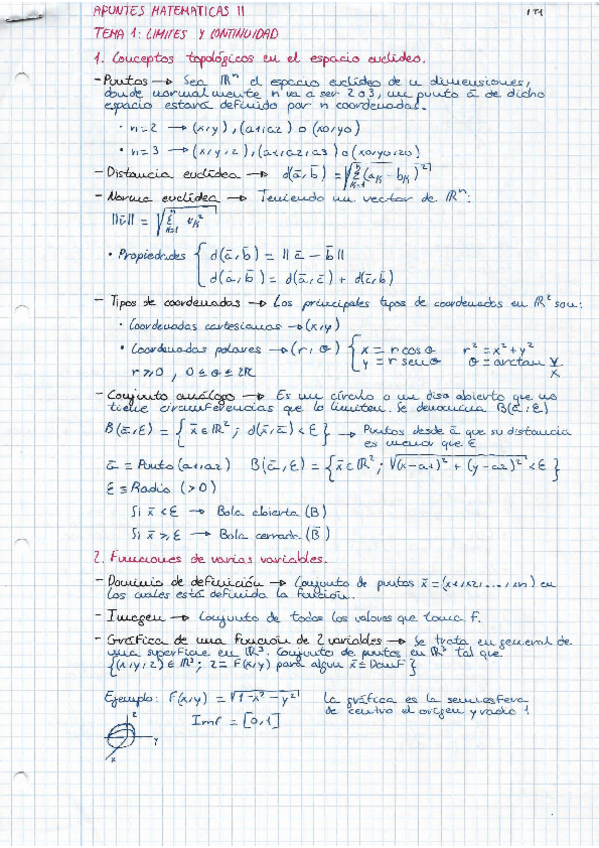 APUNTES MATEMATICAS II
1T1
TEMA 1: LIMITES Y CONTINUIDAD
1. Conceptos topológicos en el espacio euclídeo.
- Puntos → Sea ℝⁿ el espacio euclídeo de n dimensiones,
donde normalmente n va a ser 2 o 3, un punto ā de dicho
espacio estará definido por n coordenadas.
· n=2 → (x,y), (a1,a2) o (x0,y0)
· n=3 → (x,y,z), (a1,a2,a3) o (x0,y0,z0)
- Distancia euclídea → d(ā,b̄) = √Σ(aₖ - bₖ)²
- Norma euclídea → Teniendo un vector de ℝⁿ:
||ū|| = √Σ uₖ²
· Propiedades { d(ā,b̄) = ||ā - b̄||
d(ā,b̄) = d(ā,c̄) + d(c̄,b̄)
- Tipos de coordenadas → Los principales tipos de coordenadas en ℝ² son:
· Coordenadas cartesianas → (x,y)
· Coordenadas polares → (r,θ) { x = r cos θ r² = x² + y²
y = r sen θ θ = arctan y/x
r ≥ 0, 0 ≤ θ ≤ 2π
- Conjunto análogo → Es un círculo o un disco abierto que no
tiene circunferencias que lo limiten. Se denomina B(ā,ε)
B(ā,ε) = { x̄ ∈ ℝ²; d(x̄,ā) < ε } → Puntos desde ā que su distancia
es menor que ε
ā = Punto (a1,a2) B(ā,ε) = { x̄ ∈ ℝ²; √(x-a1)² + (y-a2)² < ε }
ε ≡ Radio (>0)
Si x̄ < ε → Bola abierta (B)
Si x̄ ≥ ε → Bola cerrada (B̄)
2. Funciones de varias variables.
- Dominio de definición → Conjunto de puntos x̄ = (x1,x2,...,xn) en
los cuales está definida la función.
- Imagen → Conjunto de todos los valores que toma F.
- Gráfica de una función de 2 variables → Se trata en general de
una superficie en ℝ³. Conjunto de puntos en ℝ³ tal que
{(x,y,z) ∈ ℝ³; z = F(x,y) para algún x̄ ∈ Dom F}
Ejemplo: F(x,y) = √1-x²-y² La gráfica es la semiesfera
de centro el origen y radio 1
Imf = [0,1]
z
y
x